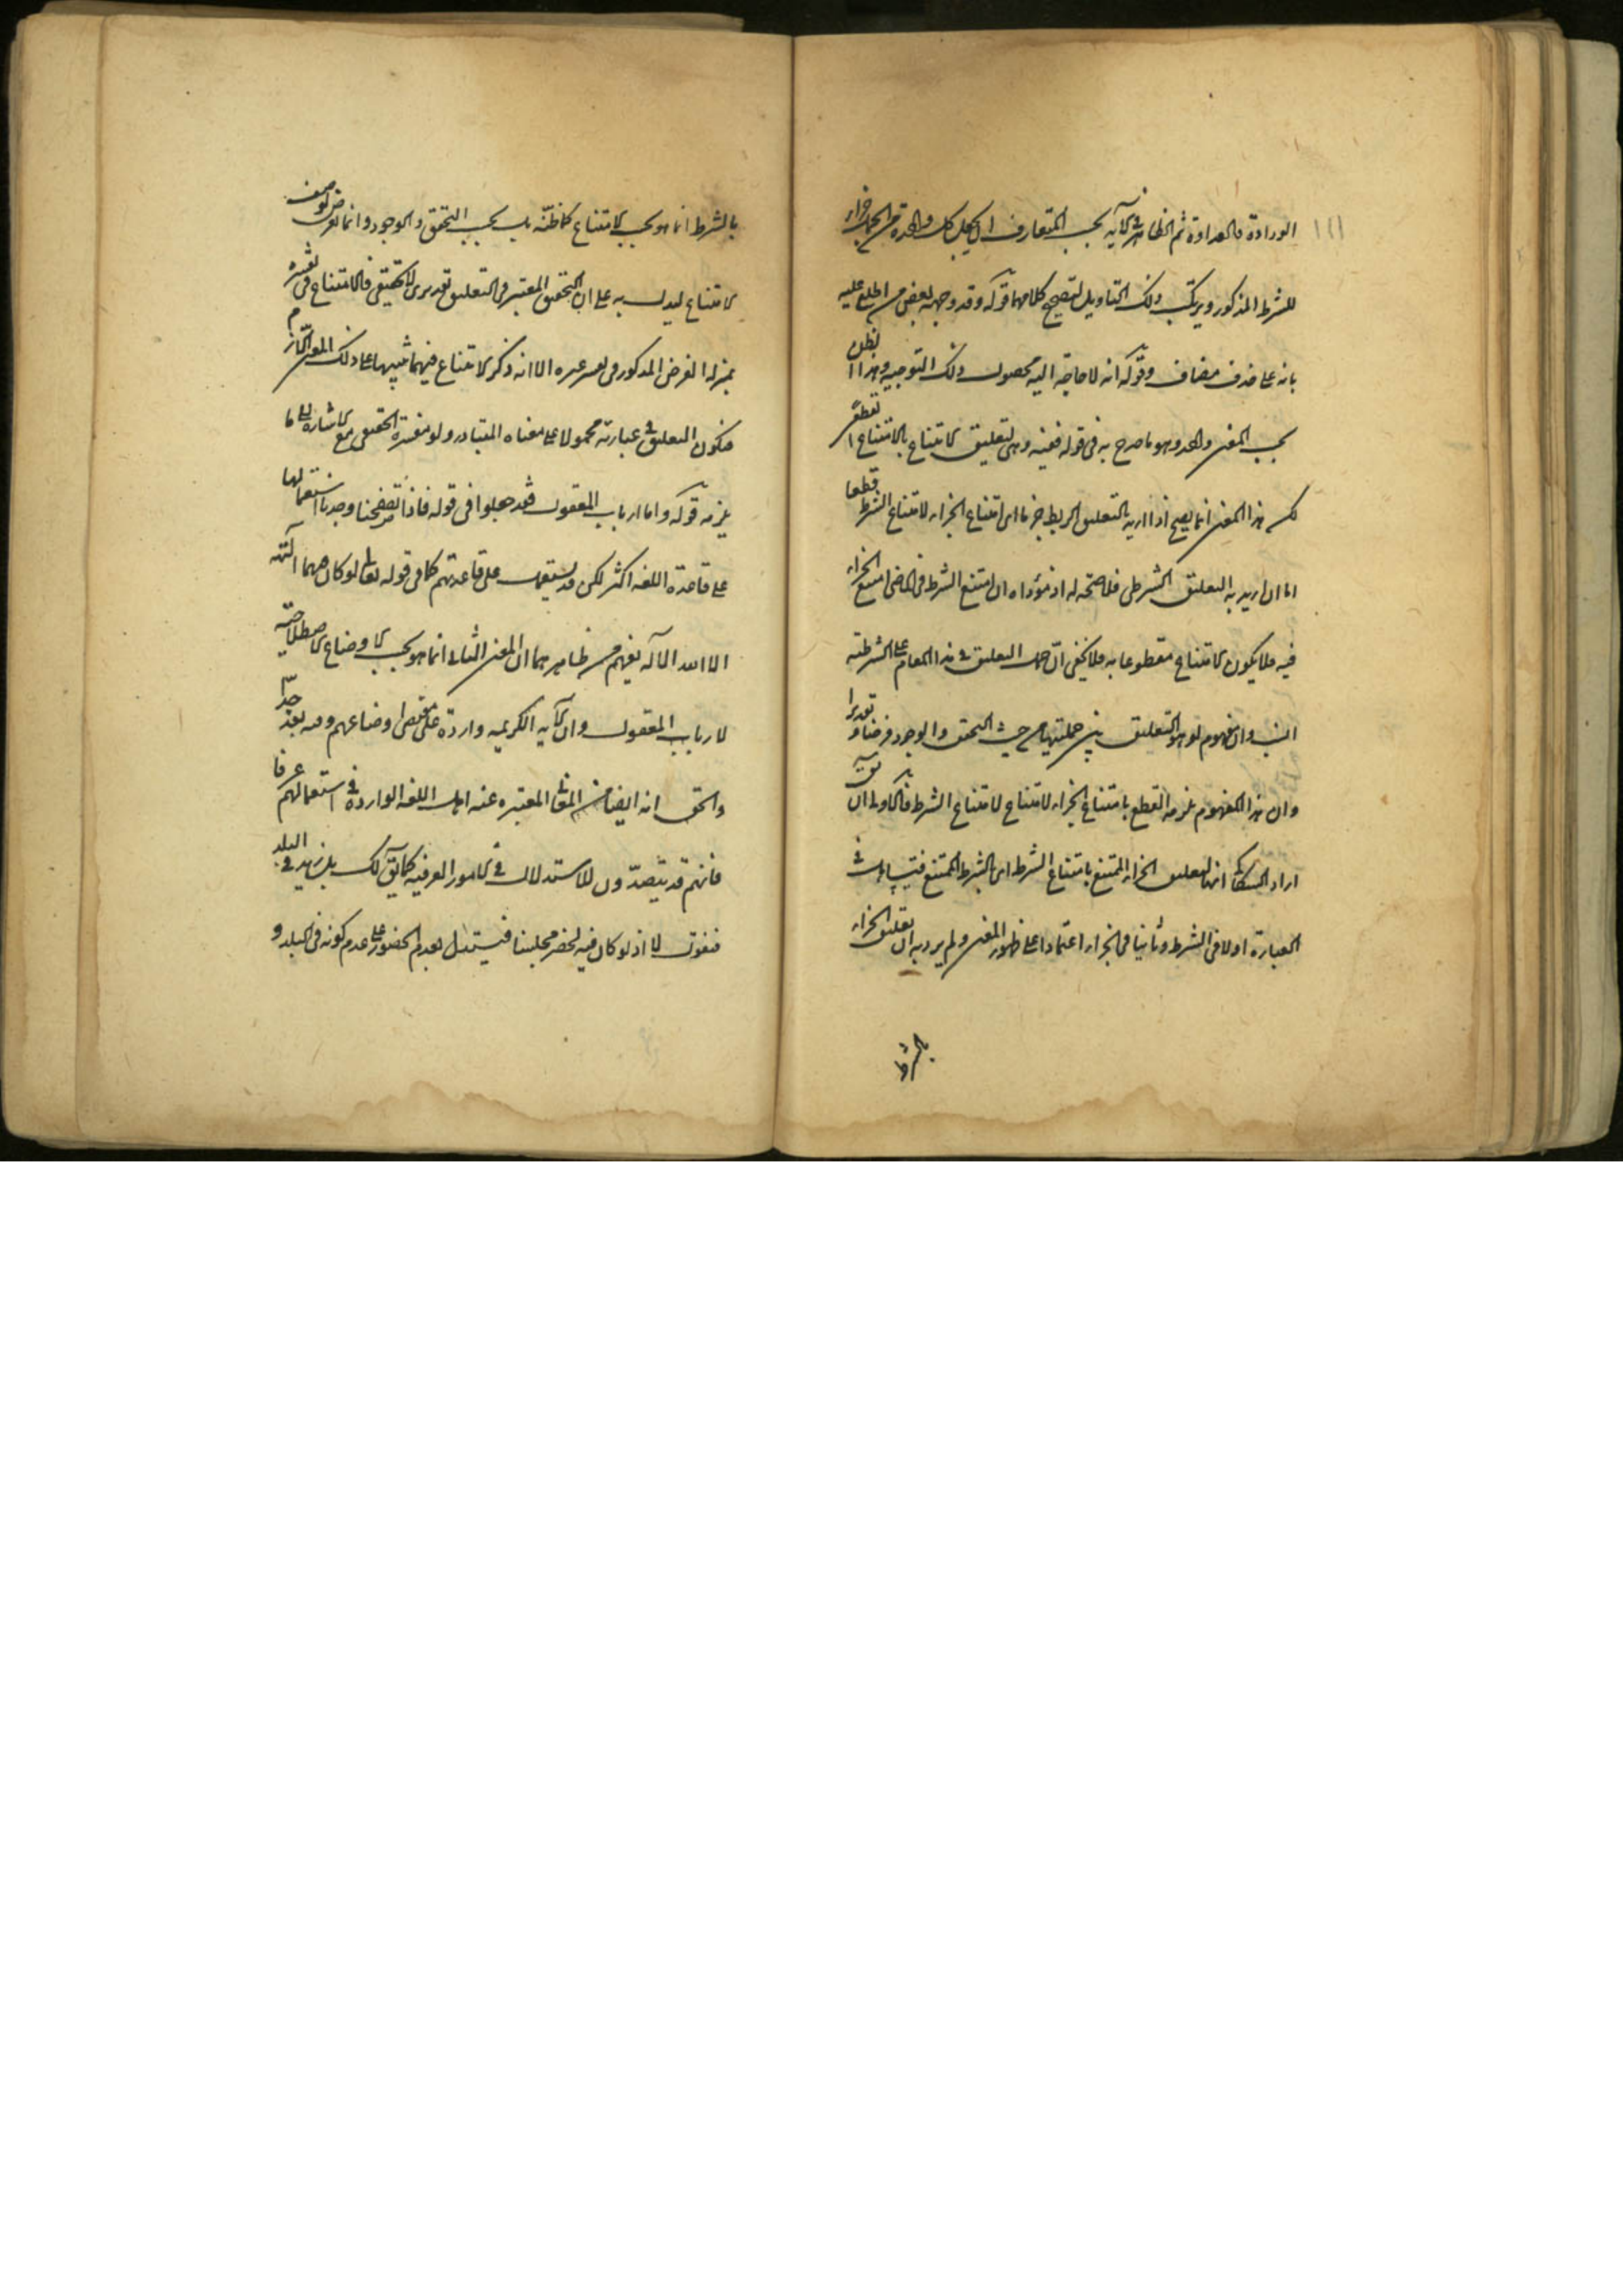 الورادة والعداوة ثم الظاهر في الآية بحسب المتعارف ان يجعل كل واحدة من الجمل جزاء
للشرط المذكور ويرتكب ذلك التاويل لتصحيح كلامهما قوله وقد وجهه بعض من اطلع عليه
بانه على حذف مضاف وقوله انه لا حاجة اليه محصول ذلك التوجيه وهذا النظر
بحسب المعنى واحد وهو ما صرح به في قوله فعنده وهى لتعليق الامتناع بالامتناع قطعا
لكن هذا المعنى انما يصح اذا اريد بالتعليق الربط جزما اى امتناع الجزاء لامتناع الشرط قطعا
اما ان اريد به التعليق الشرطى فلا صحة له اذ مؤداه ان امتنع الشرط في الماضى امتنع الجزاء
فيه فلا يكون الامتناع مقطوعا به فلا يخفى ان حمل التعليق في هذا المقام على الشرطية
انسب وان مفهوم لو هو التعليق بين جملتيها من حيث التحقق والوجود فرضا وتقديرا
وان هذا المفهوم يلزمه القطع بامتناع الجزاء لامتناع الشرط فالاولى ان يق
اراد السكاكى انها لتعليق الجزاء الممتنع بامتناع الشرط اى بالشرط الممتنع فتساهل في
العبارة اولا في الشرط وثانيا في الجزاء اعتمادا على ظهور المعنى ولم يرد به ان تعليق الجزاء
بالشرط
بالشرط انما هو بحسب الامتناع كما ظنه بل بحسب التحقق والوجود وانما تعرض لوصف
الامتناع ليدل به على ان التحقق المعتبر في التعليق تقديرى لا تحقيقى فالامتناع في تفسيره
بمنزلة الفرض المذكور في تفسير غيره الا انه ذكر الامتناع فيهما تنبيها على ذلك المعنى اللازم
فيكون التعليق في عبارته محمولا على معناه المتبادر ولو مفسرة التحقيق مع الاشارة الى ما
يلزمه قوله واما ارباب المعقول فقد جعلوا في قوله فاذا تصفحنا وجدنا استعمالها
على قاعدة اللغة اكثر لكن قد يستعمل على قاعدتهم كما في قوله تعالى لو كان فيهما آلهة
الا الله الآية يفهم من ظاهرهما ان المعنى الثانى انما هو بحسب الاوضاع الاصطلاحية
لارباب المعقول وان الآية الكريمة واردة على مقتضى اوضاعهم وفيه بعد جدا
والحق انه ايضا من المعانى المعتبرة عند اهل اللغة الواردة في استعمالهم عرفا
فانهم قد يقصدون للاستدلال في الامور العرفية كما يق لك هل زيد في البلد
فنقول لا اذ لو كان فيه لحضر مجلسنا فيستدل بعدم الحضور على عدم كونه في البلد و